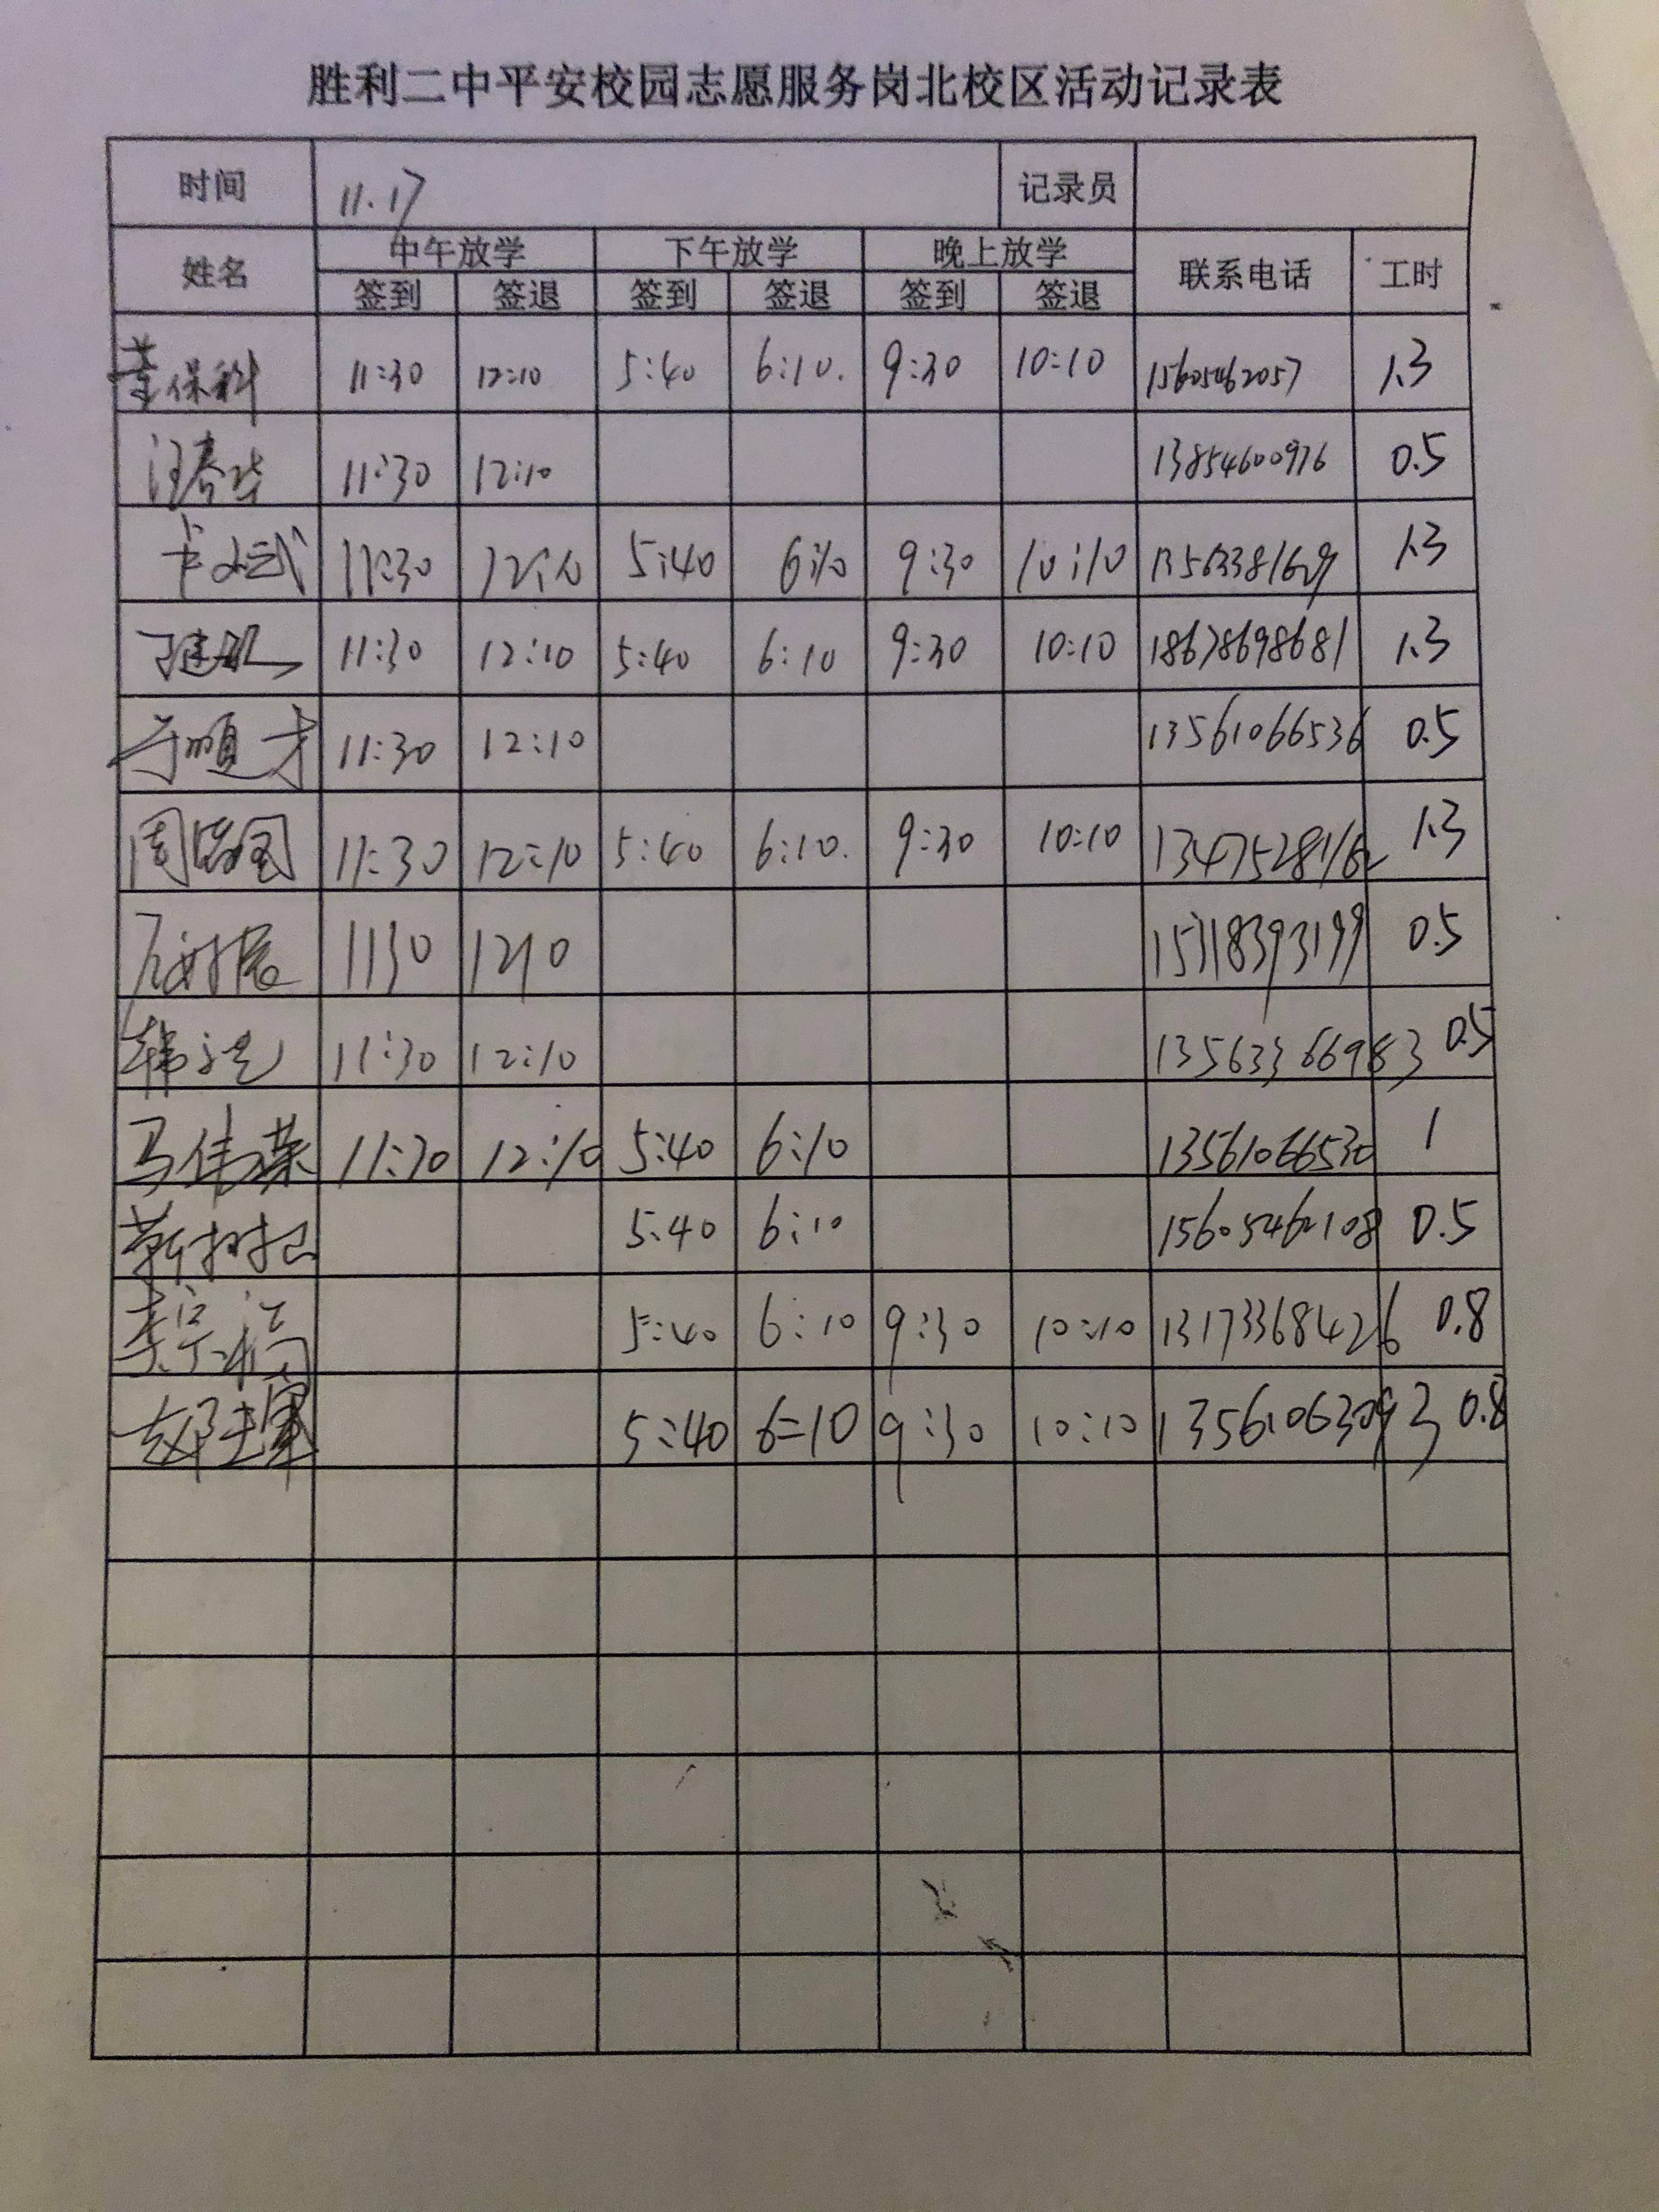 胜利二中平安校园志愿服务岗北校区活动记录表
时间 11.17 记录员
姓名 中午放学 下午放学 晚上放学 联系电话 工时
签到 签退 签到 签退 签到 签退
董保科 11:30 12:10 5:40 6:10. 9:30 10:10 15605462057 1.3
汪春华 11:30 12:10 13854600976 0.5
卞文武 11:30 12:10 5:40 6:10 9:30 10:10 1.3
11:30 12:10 5:40 6:10 9:30 10:10 18678698681 1.3
于顺才 11:30 12:10 13561066536 0.5
11:30 12:10 5:40 6:10. 9:30 10:10 13475281162 1.3
1130 1210 15318393199 0.5
11:30 12:10 13563366983 0.5
马伟荣 11:30 12:10 5:40 6:10 13561066530 1
5:40 6:10 15605462108 0.5
5:40 6:10 9:30 10:10 13173368426 0.8
5:40 6=10 9:30 10:10 13561063093 0.8